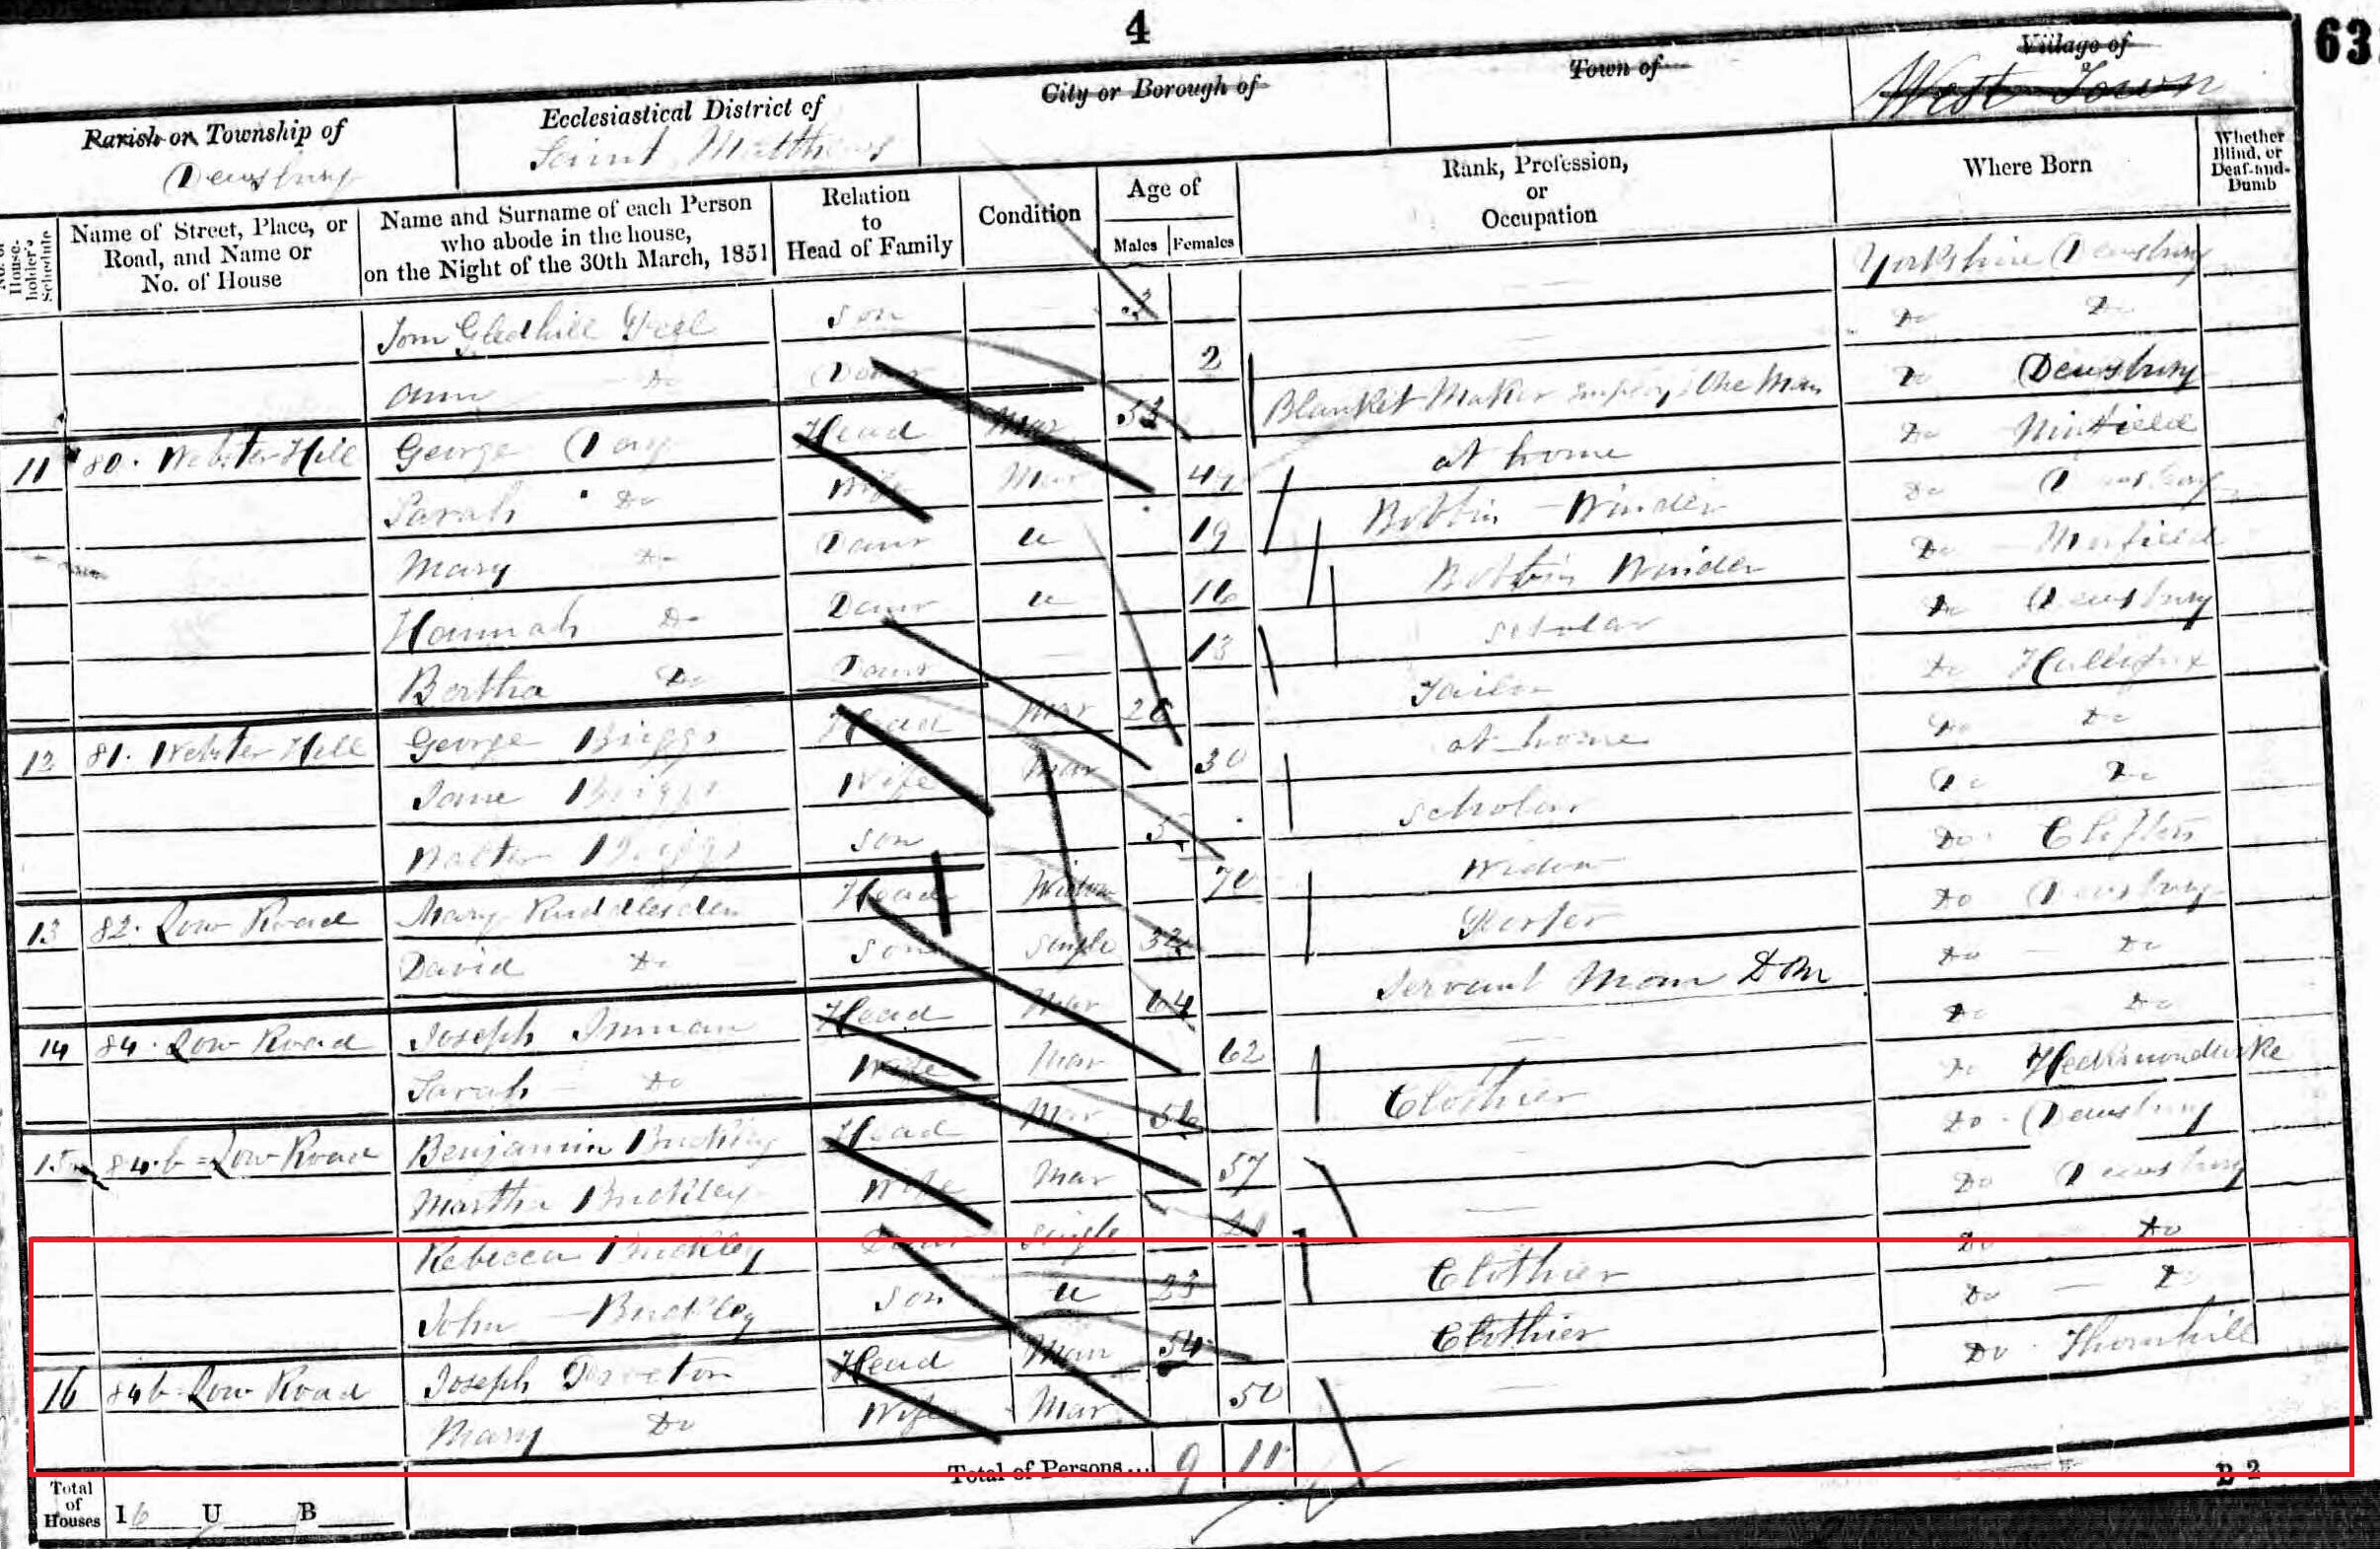 4
63
Parish or Township of
Dewsbury
Ecclesiastical District of
Saint Matthews
City or Borough of
Town of
Village of
West Town
No. of House-holder's Schedule
Name of Street, Place, or Road, and Name or No. of House
Name and Surname of each Person who abode in the house, on the Night of the 30th March, 1851
Relation to Head of Family
Condition
Age of
Males
Females
Rank, Profession, or Occupation
Where Born
Whether Blind, or Deaf-and-Dumb
Tom Gledhill son 3 Yorkshire Dewsbury
Ann Do Daur 2 Do Do
11 80. Webster Hill George Head Mar 53 Blanket Maker One Man Do Dewsbury
Sarah Do Wife Mar 49 at home Do Mirfield
Mary Do Daur u 19 Bobbin Winder Do Dewsbury
Hannah Do Daur u 16 Bobbin Winder Do Mirfield
Bertha Do Daur 13 scholar Do Dewsbury
12 81. Webster Hill George Briggs Head Mar Tailor Do Hallifax
Jane Briggs Wife Mar 30 at home Do Do
Walter Briggs son 5 scholar Do Do
13 82. Low Road Mary Ruddlesden Head Widow 70 Widow Do Clifton
David Do son single Do Dewsbury
14 84. Low Road Joseph Inman Head Mar 64 Servant Man Do Do
Sarah Do Wife Mar 62 Do Do
15 84.b = Low Road Benjamin Buckley Head Mar 56 Clothier Do Heckmondwike
Martha Buckley Wife Mar 57 Do Dewsbury
Rebecca Buckley Daur single 21 Do Dewsbury
John Buckley son u 23 Clothier Do Do
16 84b = Low Road Joseph Head Mar 54 Clothier Do Do
Mary Do Wife Mar 50 Do Thornhill
Total of Houses 16 U B
Total of Persons... 9 11
B 2